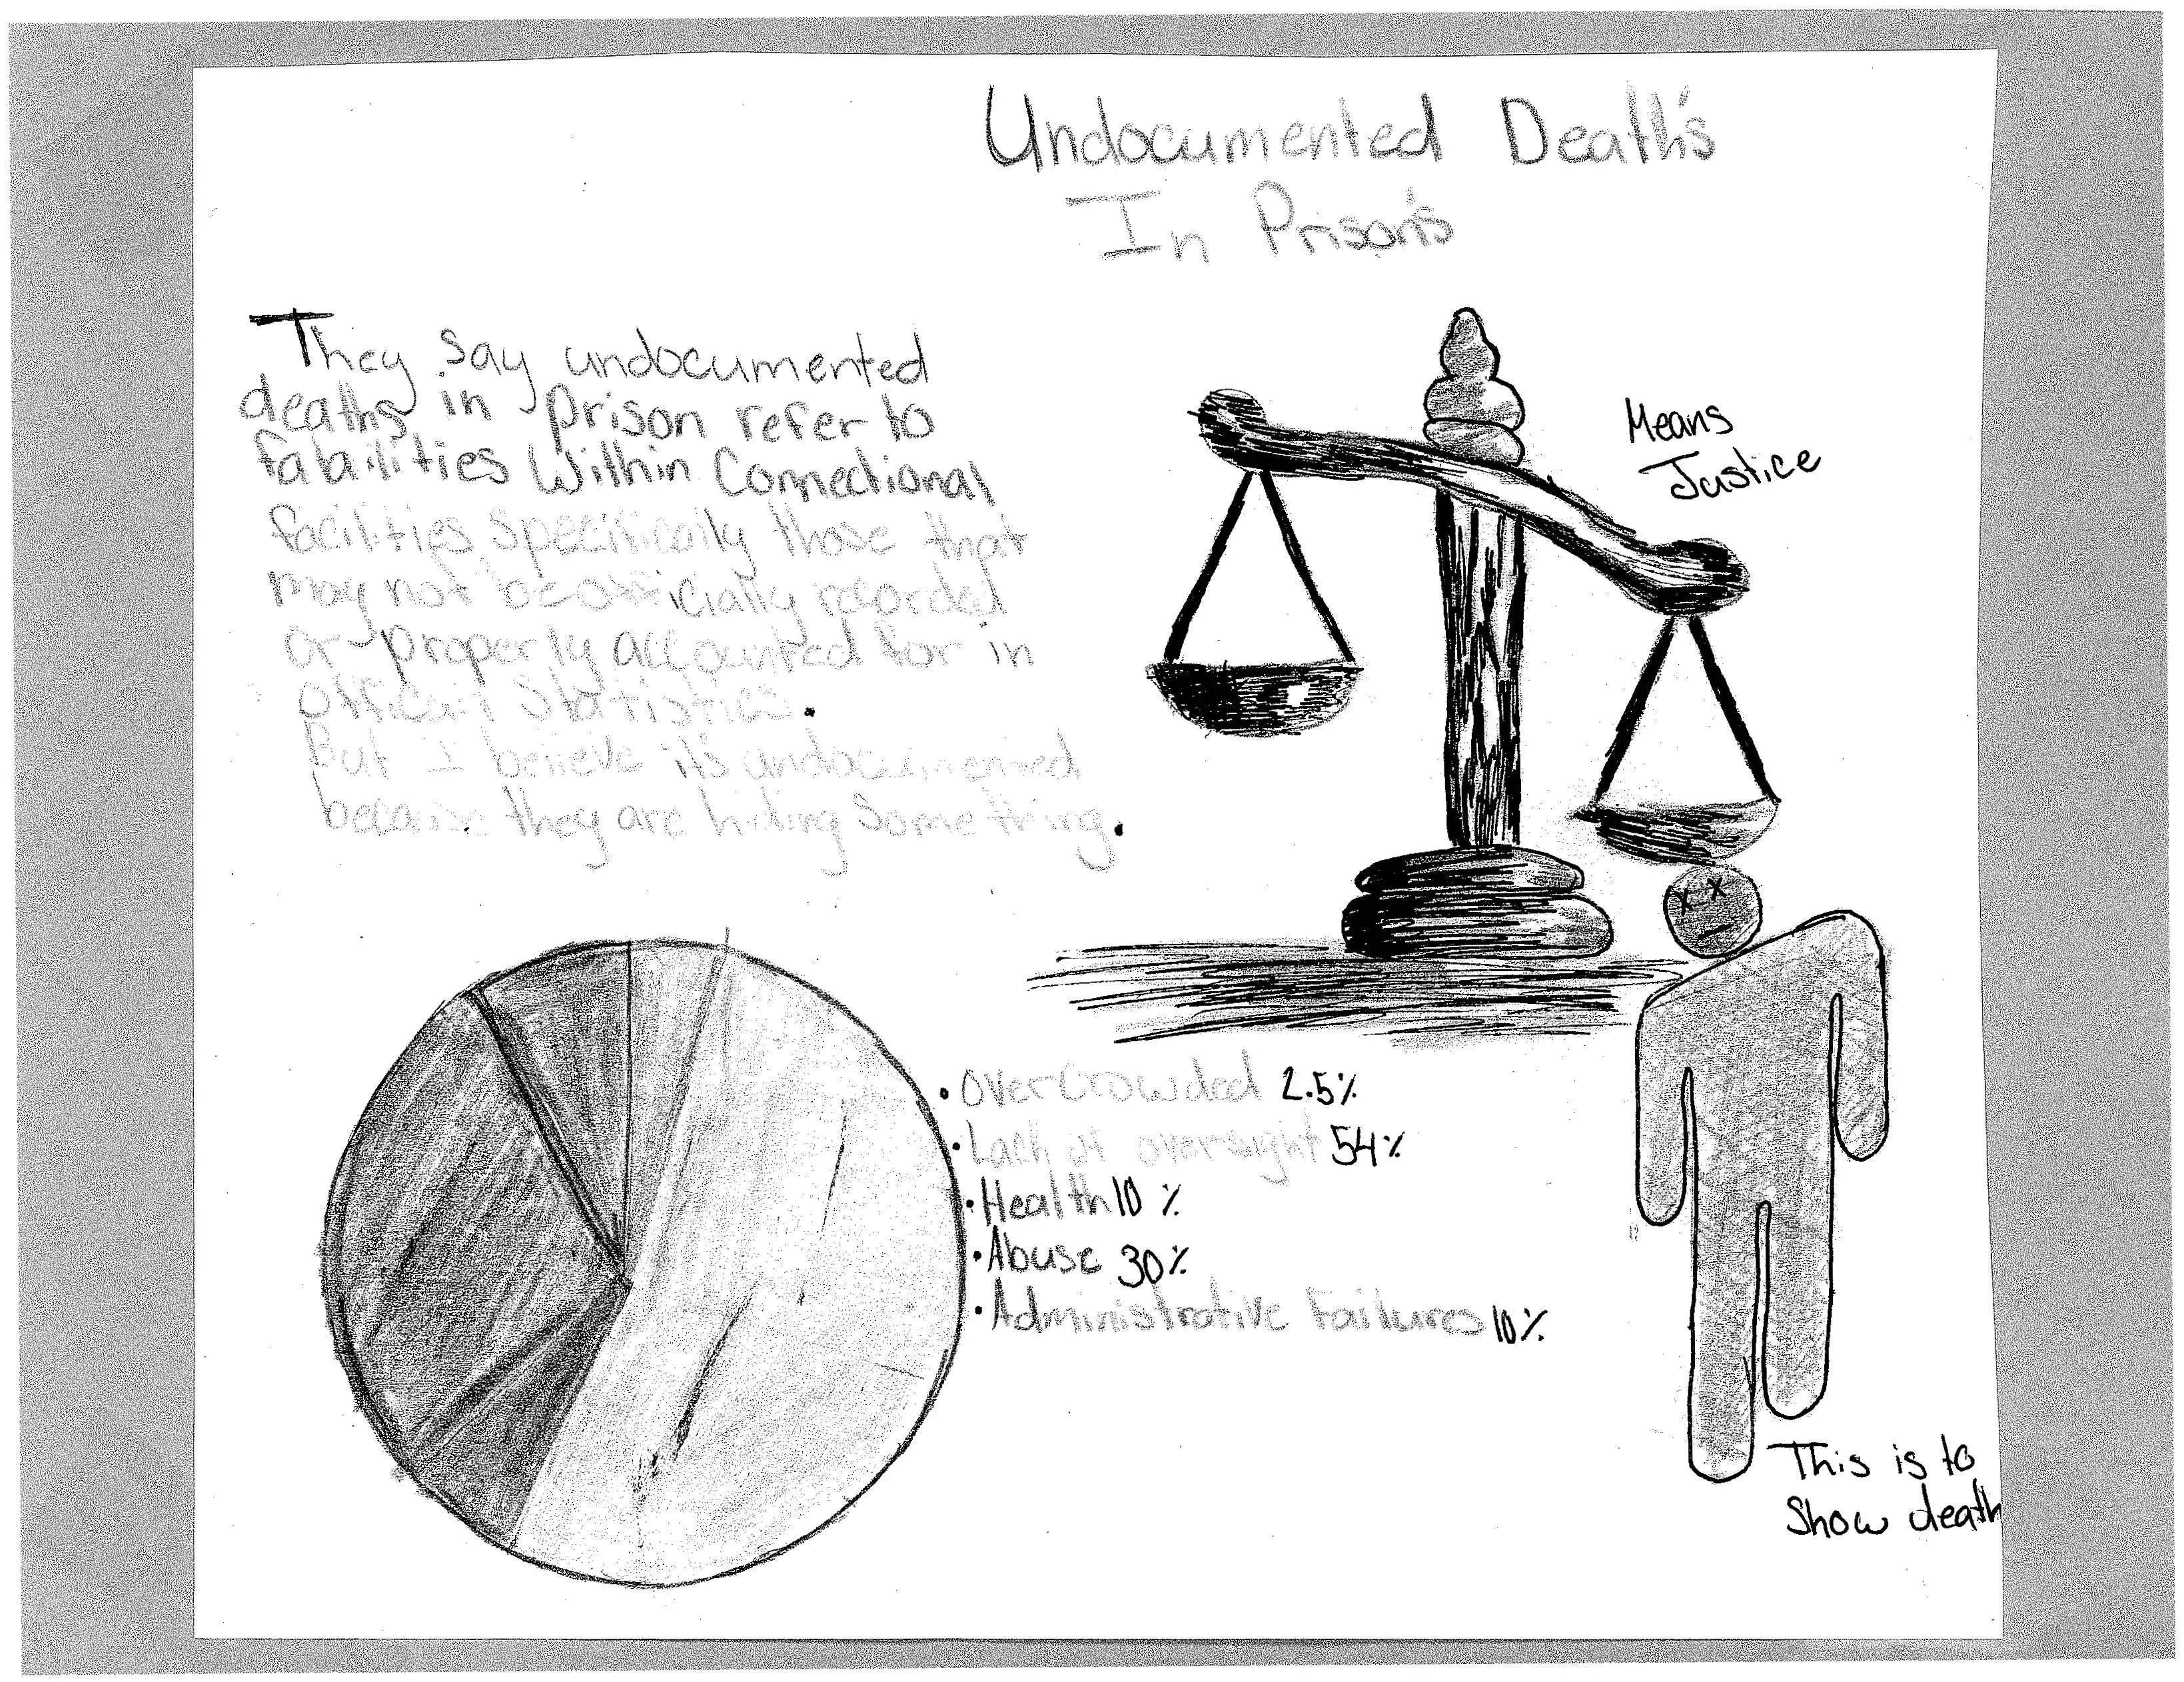 Undocumented Death's
In Prison's
They say undocumented
deaths in prison refer to
fatailities Within Connectional
facilities specifically those that
may not be officially recorded
or properly accounted for in
Officail Statistics.
But I believe it's undocumented
because they are hiding Something.
Means
Justice
• Over Crowded 2.5%
• Lack of oversight 54%
• Health 10%
• Abuse 30%
• Administrative Failures 10%
This is to
Show death